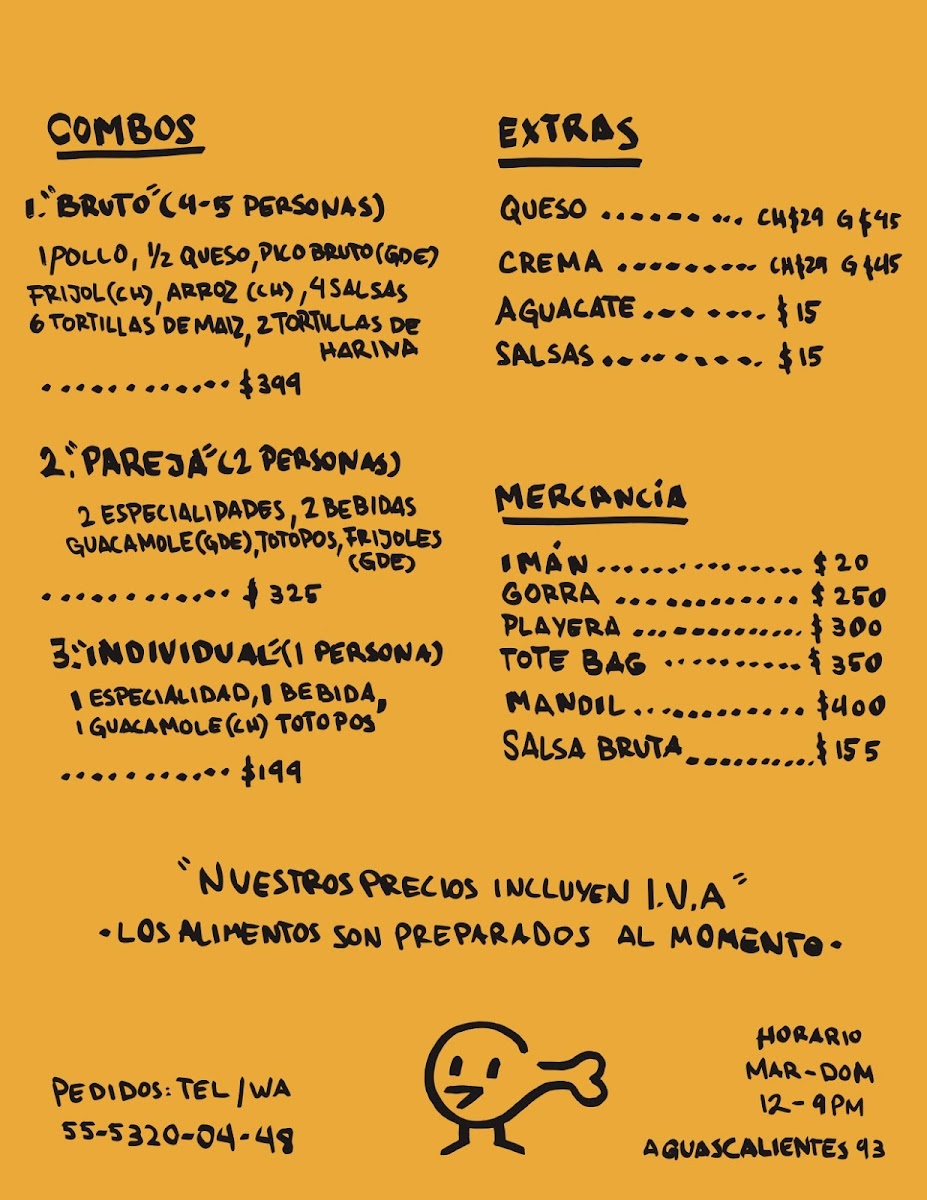 COMBOS
1. "BRUTO" (4-5 PERSONAS)
1 POLLO, 1/2 QUESO, PICO BRUTO (GDE)
FRIJOL (CH), ARROZ (CH), 4 SALSAS
6 TORTILLAS DE MAIZ, 2 TORTILLAS DE
HARINA
............ $399
2. "PAREJA" (2 PERSONAS)
2 ESPECIALIDADES, 2 BEBIDAS
GUACAMOLE (GDE), TOTOPOS, FRIJOLES
(GDE)
............ $325
3. "INDIVIDUAL" (1 PERSONA)
1 ESPECIALIDAD, 1 BEBIDA,
1 GUACAMOLE (CH) TOTOPOS
........... $199
EXTRAS
QUESO .......... CH $29 G $45
CREMA .......... CH $29 G $45
AGUACATE ........ $15
SALSAS .......... $15
MERCANCÍA
IMÁN ............... $20
GORRA ............ $250
PLAYERA ............ $300
TOTE BAG .......... $350
MANDIL ............ $400
SALSA BRUTA ........... $155
"NUESTROS PRECIOS INCLUYEN I.V.A"
• LOS ALIMENTOS SON PREPARADOS AL MOMENTO •
PEDIDOS: TEL / WA
55-5320-04-48
HORARIO
MAR-DOM
12-9PM
AGUASCALIENTES 93